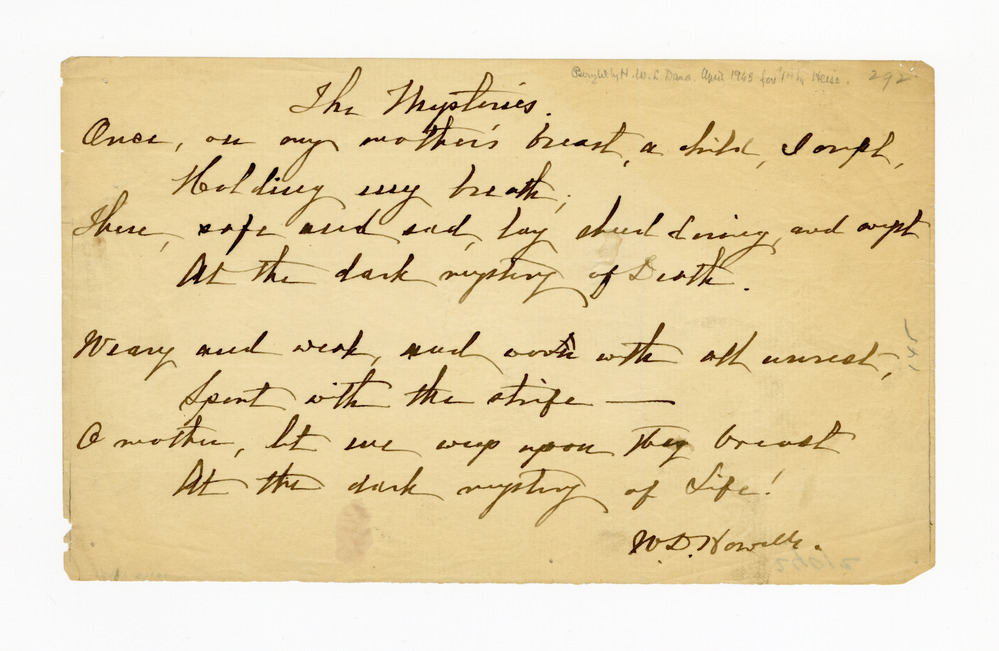 292
The Mysteries.
Once, on my mother's breast, a child, I crept,
Holding my breath;
There, safe and sad, lay shuddering, and wept
At the dark mystery of Death.
Weary and weak, and worn with all unrest,
Spent with the strife —
O mother, let me weep upon thy breast
At the dark mystery of Life!
W.D. Howells.